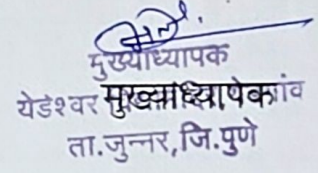 मुख्याध्यापक
येडेश्वर मुख्याध्यापेक गांव
ता.जुन्नर,जि.पुणे